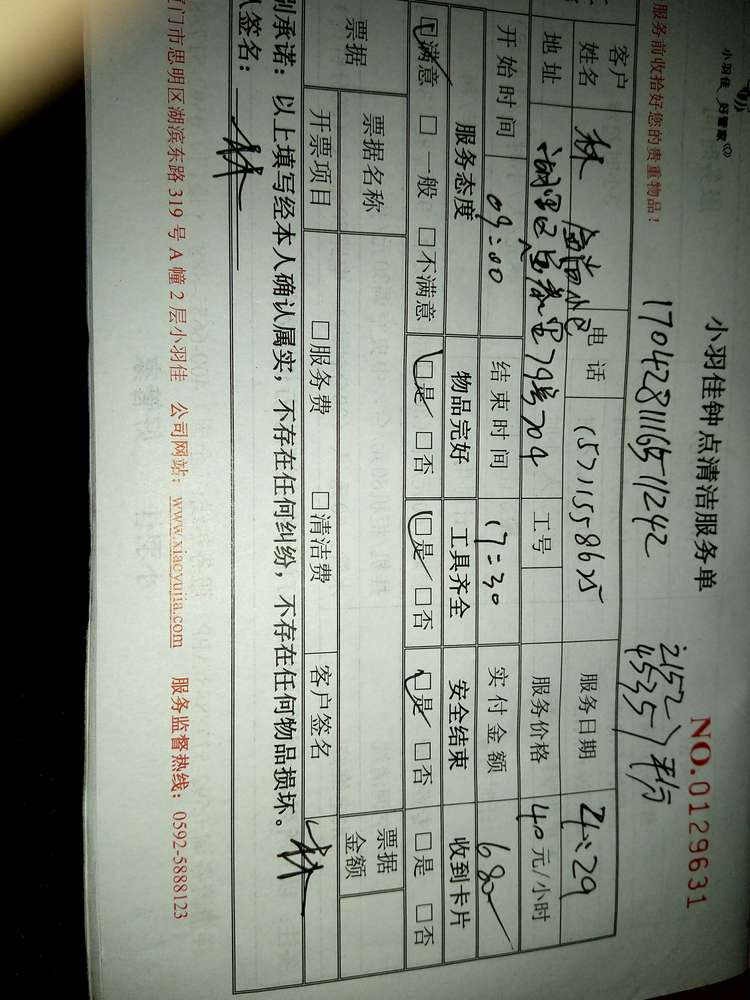 小羽佳 好管家
小羽佳钟点清洁服务单
NO.0129631
服务前收拾好您的贵重物品！
1704281116511242
2152
4535
客户
姓名 林 电话 15711558625 服务日期 4:29
地址 湖里区 里79号704 工号 服务价格 40元/小时
开始时间 09:00 结束时间 17:30 实付金额 680
服务态度 物品完好 工具齐全 安全结束 收到卡片
☑满意 □一般 □不满意 ☑是 □否 ☑是 □否 ☑是 □否 □是 □否
票据 票据名称 票据
金额
开票项目 □服务费 □清洁费 客户签名 林
别承诺：以上填写经本人确认属实，不存在任何纠纷，不存在任何物品损坏。
签名：林
厦门市思明区湖滨东路319号A幢2层小羽佳 公司网站：www.xiaoyujia.com 服务监督热线：0592-5888123